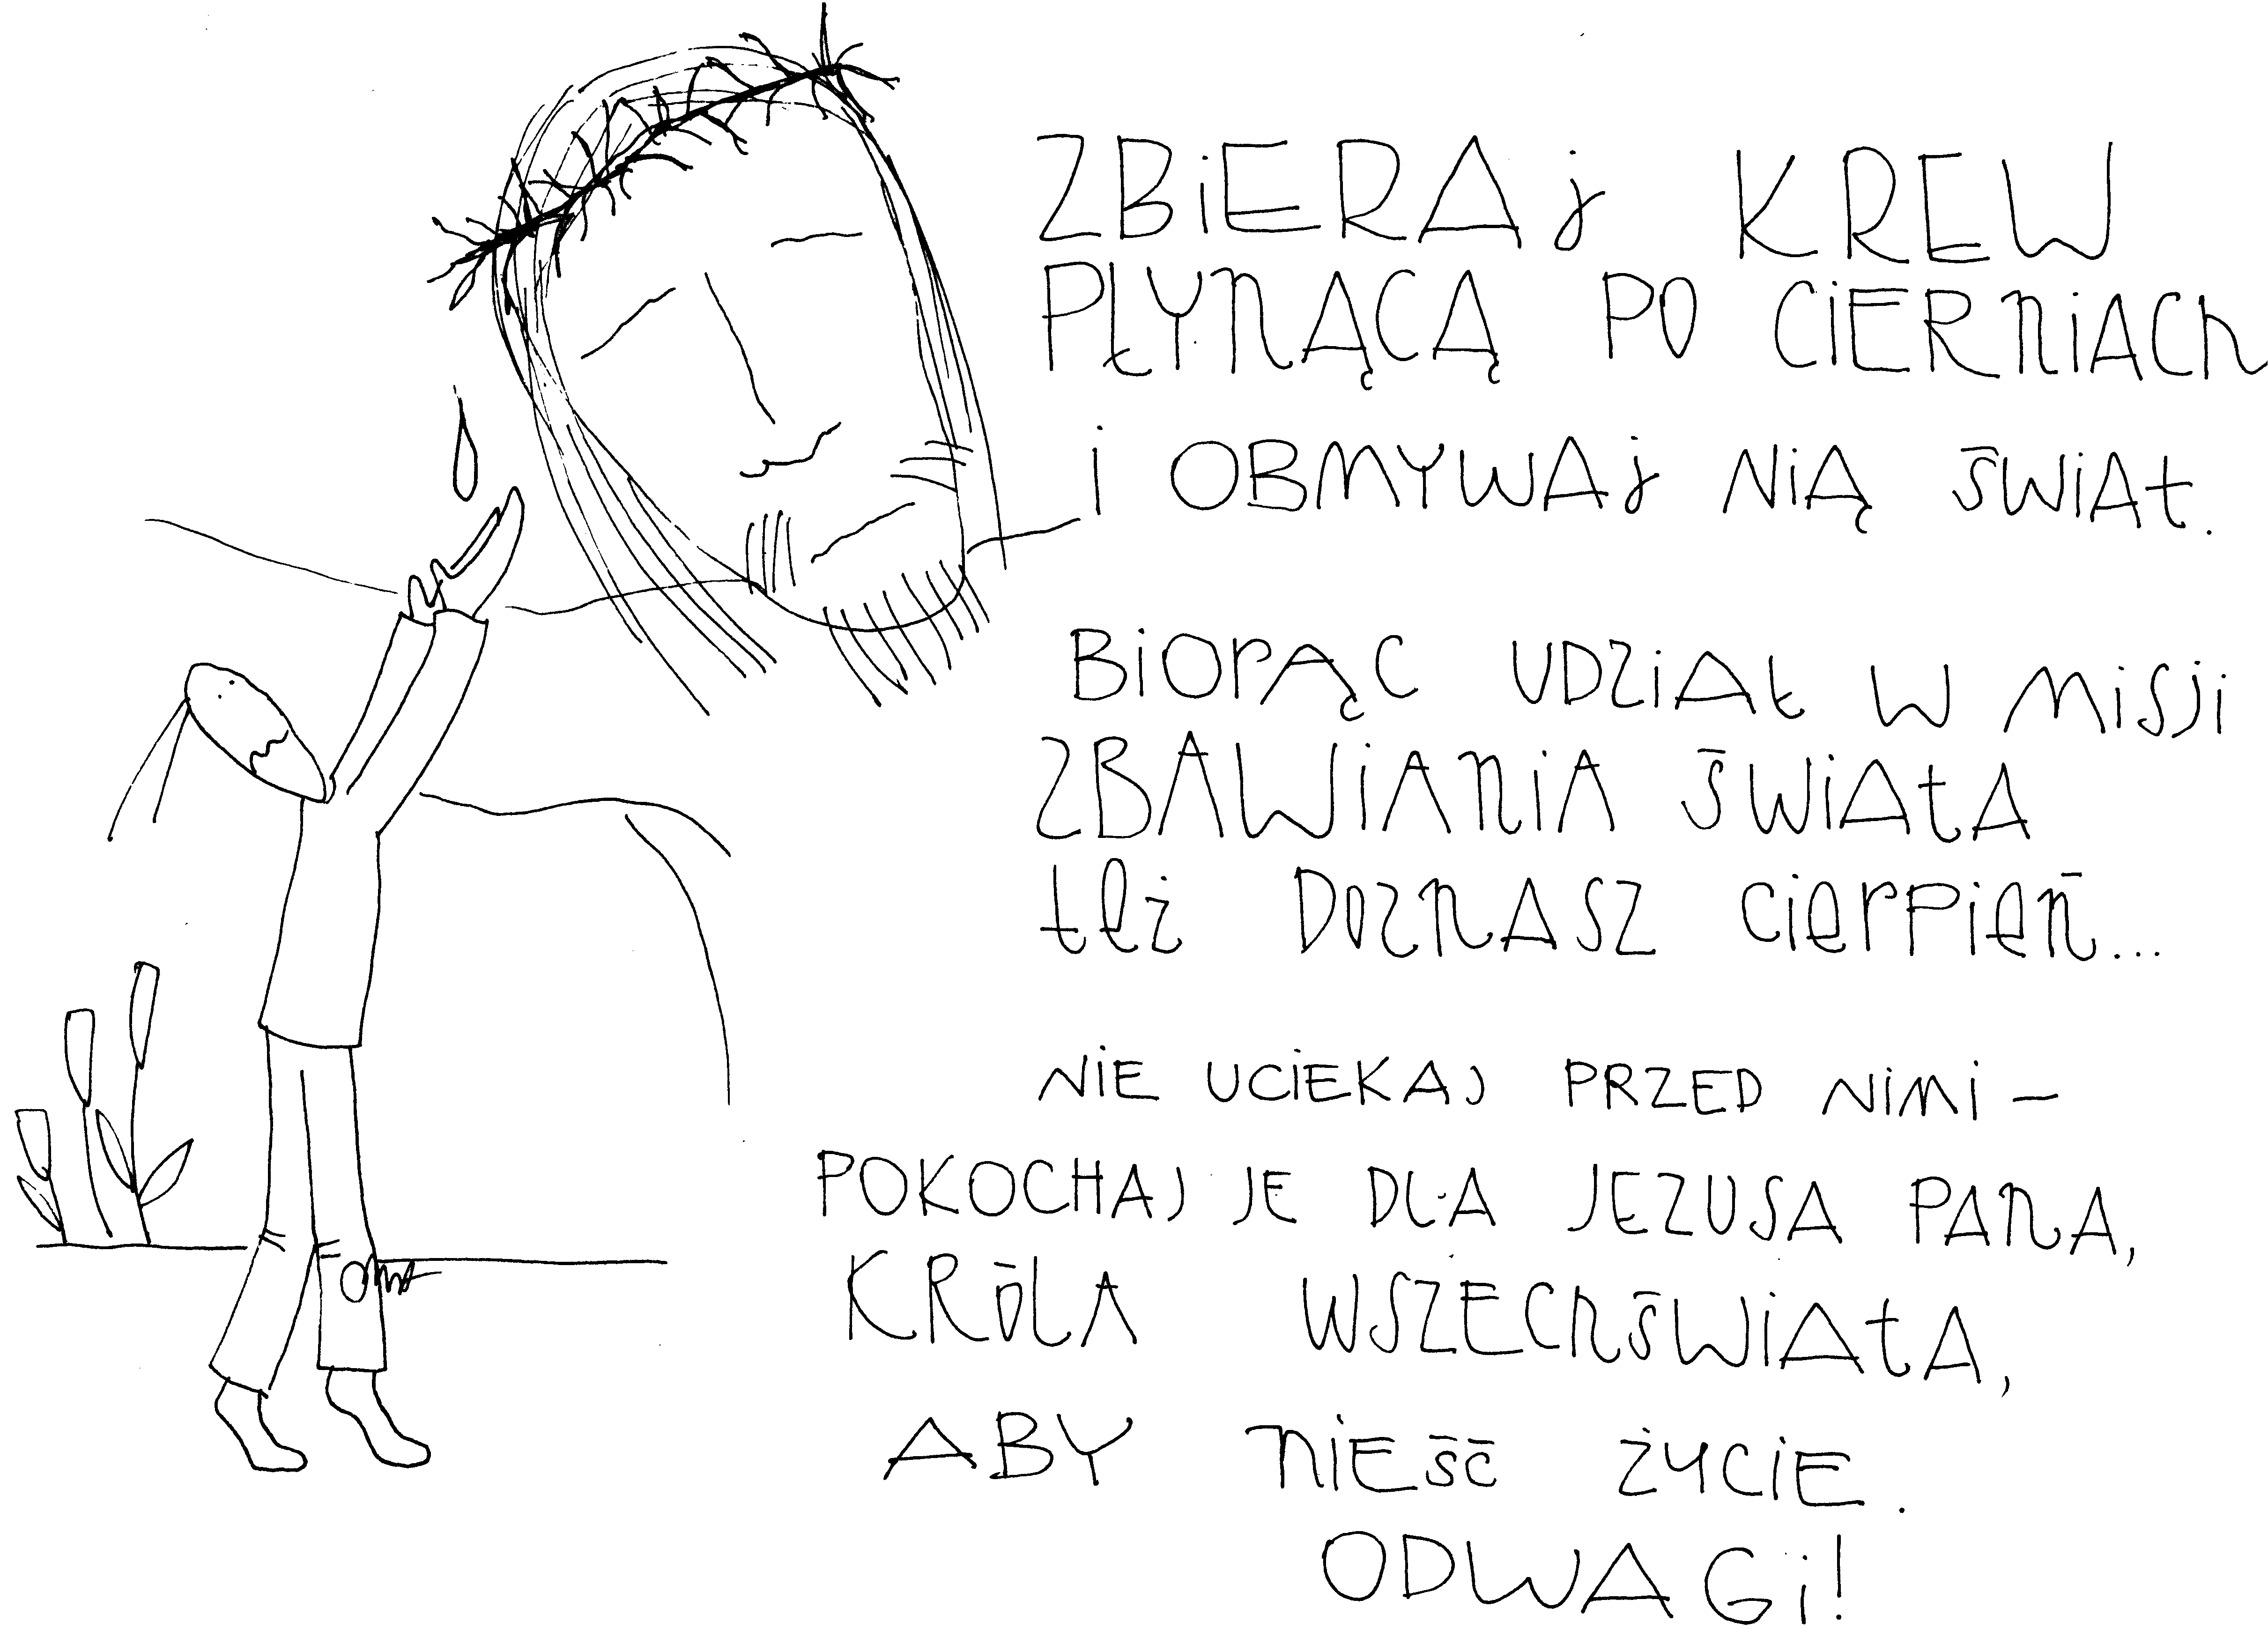 ZBiERAj KREW
PŁYNĄCĄ PO CiERNiACh
i OBMYWAj NiĄ ŚWiAt.
BiORĄC UDZiAŁ W MiSji
ZBAWiANiA ŚWiAtA
też DOZNASZ CierPień...
NiE UCiEKAJ PRZED NiMi –
POKOCHAJ JE DLA JEZUSA PANA,
KRÓLA WSZEChŚWiAtA,
ABY NiEŚĆ ŻYCiE.
ODWAGi!